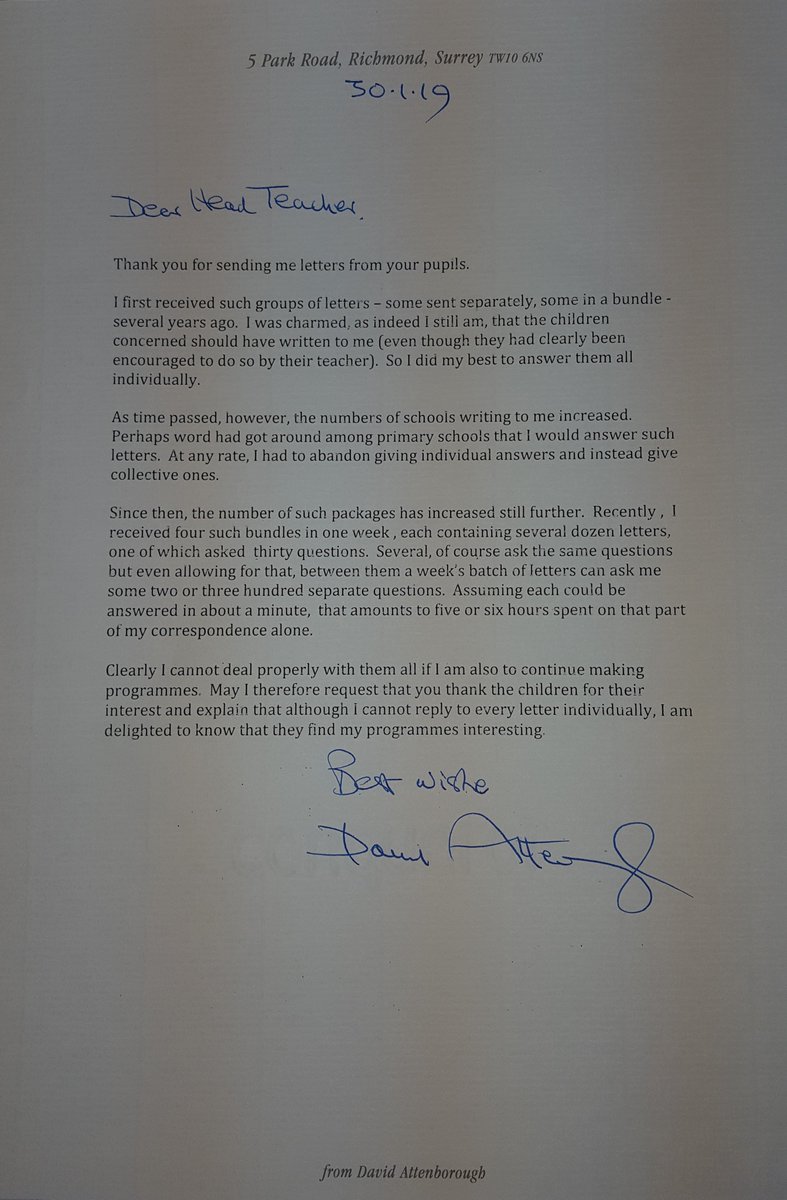 5 Park Road, Richmond, Surrey TW10 6NS
30.1.19
Dear Head Teacher,
Thank you for sending me letters from your pupils.
I first received such groups of letters – some sent separately, some in a bundle -
several years ago.  I was charmed, as indeed I still am, that the children
concerned should have written to me (even though they had clearly been
encouraged to do so by their teacher).  So I did my best to answer them all
individually.
As time passed, however, the numbers of schools writing to me increased.
Perhaps word had got around among primary schools that I would answer such
letters.  At any rate, I had to abandon giving individual answers and instead give
collective ones.
Since then, the number of such packages has increased still further.  Recently ,  I
received four such bundles in one week , each containing several dozen letters,
one of which asked  thirty questions.  Several, of course ask the same questions
but even allowing for that, between them a week's batch of letters can ask me
some two or three hundred separate questions.  Assuming each could be
answered in about a minute,  that amounts to five or six hours spent on that part
of my correspondence alone.
Clearly I cannot deal properly with them all if I am also to continue making
programmes.  May I therefore request that you thank the children for their
interest and explain that although I cannot reply to every letter individually, I am
delighted to know that they find my programmes interesting.
Best wishe
David Attenborough
from David Attenborough